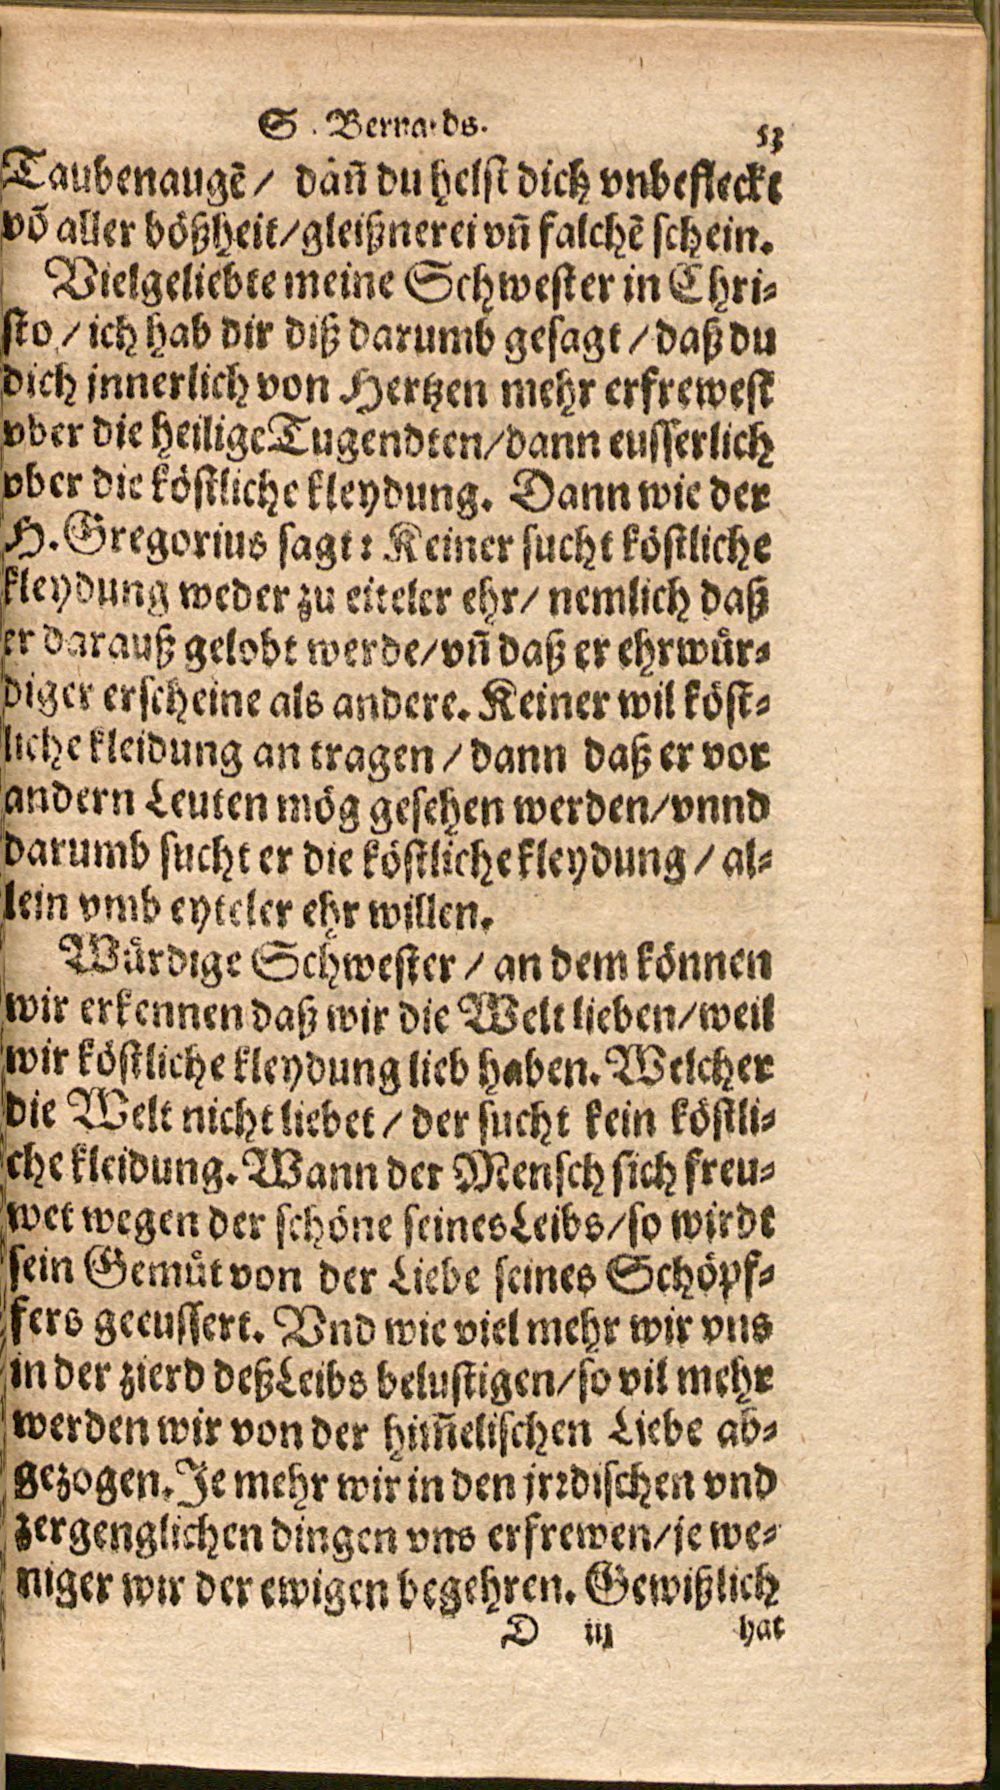 S. Bernards. 53
Taubenaugẽ / dañ du helst dich vnbefleckt
võ aller bößheit/gleißnerei vñ falchẽ schein.
Vielgeliebte meine Schwester in Chri-
sto / ich hab dir diß darumb gesagt / daß du
dich jnnerlich von Hertzen mehr erfrewest
vber die heilige Tugendten/dann eusserlich
vber die köstliche kleydung. Dann wie der
H. Gregorius sagt: Keiner sucht köstliche
kleydung weder zu eiteler ehr/ nemlich daß
er darauß gelobt werde/vñ daß er ehrwür-
diger erscheine als andere. Keiner wil köst-
liche kleidung an tragen / dann daß er vor
andern Leuten mög gesehen werden/vnnd
darumb sucht er die köstliche kleydung / al-
lein vmb eyteler ehr willen.
Würdige Schwester / an dem können
wir erkennen daß wir die Welt lieben/weil
wir köstliche kleydung lieb haben. Welcher
die Welt nicht liebet / der sucht kein köstli-
che kleidung. Wann der Mensch sich freu-
wet wegen der schöne seines Leibs/so wirdt
sein Gemüt von der Liebe seines Schöpf-
fers geeussert. Vnd wie viel mehr wir vns
in der zierd deß Leibs belustigen/so vil mehr
werden wir von der him̃elischen Liebe ab-
gezogen. Je mehr wir in den jrrdischen vnd
zergenglichen dingen vns erfrewen/je we-
niger wir der ewigen begehren. Gewißlich
D iij hat